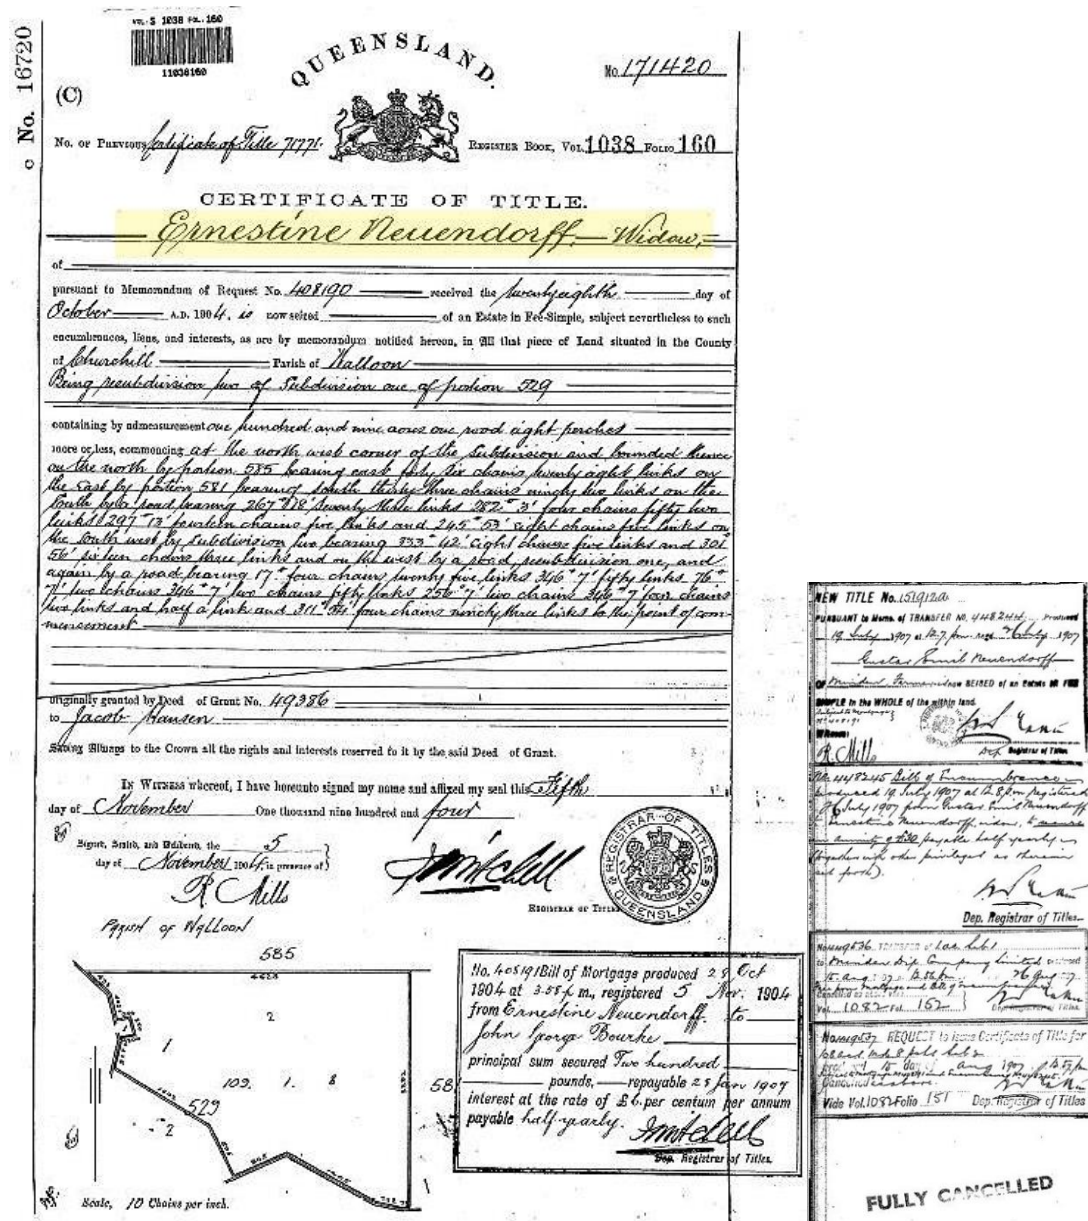 VOL. S 1038 FOL. 160
11038160
c No. 16720
(C)
QUEENSLAND.
No. 171420
No. of Previous Certificate of Title 71771.
Register Book, Vol. 1038 Folio 160
CERTIFICATE OF TITLE.
Ernestine Neuendorff, Widow,
of
pursuant to Memorandum of Request No. 408190 received the twenty eighth day of
October A.D. 1904, is now seized of an Estate in Fee-Simple, subject nevertheless to such
encumbrances, liens, and interests, as are by memorandum notified hereon, in All that piece of Land situated in the County
of Churchill Parish of Walloon
Being resubdivision two of Subdivision one of portion 529
containing by admeasurement one hundred and nine acres one rood eight perches
more or less, commencing at the north west corner of the subdivision and bounded thence
on the north by portion 585 bearing east forty six chains twenty eight links on
the East by portion 581 bearing south thirty three chains ninety two links on the
South by a road bearing 267° 18' seventy three links 282° 3' four chains fifty two
links 297° 13' fourteen chains five links and 245° 53' eight chains five links on
the South west by Subdivision two bearing 333° 42' eight chains five links and 301°
56' sixteen chains three links and on the west by a road, resubdivision one, and
again by a road bearing 17° four chains twenty five links 346° 7' fifty links 76°
7' two chains 346° 7' two chains fifty links 256° 7' two chains 346° 7' four chains
two links and half a link and 311° four chains ninety three links to the point of com-
mencement
originally granted by Deed of Grant No. 49386
to Jacob Hansen
Saving Always to the Crown all the rights and interests reserved to it by the said Deed of Grant.
In Witness whereof, I have hereunto signed my name and affixed my seal this Fifth
day of November One thousand nine hundred and four
Signed, Sealed, and Delivered, the 5
day of November 1904, in presence of
R Mills
REGISTRAR OF TITLES
REGISTRAR OF TITLES QUEENSLAND
PARISH OF WALLOON
585
4628
2
1
109. 1. 8
3392
58
529
2
Scale, 10 Chains per inch.
No. 408191 Bill of Mortgage produced 28 Oct
1904 at 3.55 p m., registered 5 Nov. 1904
from Ernestine Neuendorff to
John George Bourke
principal sum secured Two hundred
pounds, repayable 28 Jan 1907
interest at the rate of £6 per centum per annum
payable half yearly.
Dep. Registrar of Titles.
NEW TITLE No.
PURSUANT to Memo. of TRANSFER No. 448244 Produced
19 July 1907 at 12.7 pm. regd 26 July 1907
Gustav Emil Neuendorff
of Minden Farmer is now SEIZED of an Estate in FEE
SIMPLE in the WHOLE of the within land.
R Mills
Dep. Registrar of Titles
No. 448245 Bill of Encumbrance
produced 19 July 1907 at 12.8 pm registered
26 July 1907 from Gustav Emil Neuendorff
to Ernestine Neuendorff, widow, to secure
annuity of £30 payable half yearly
(together with other privileges as therein
set forth).
Dep. Registrar of Titles
TRANSFER of
to Minden Dip Company Limited
Vol. 1082 Fol. 152
REQUEST to issue Certificate of Title for
Vide Vol. 1082 Folio 151 Dep. Registrar of Titles
FULLY CANCELLED